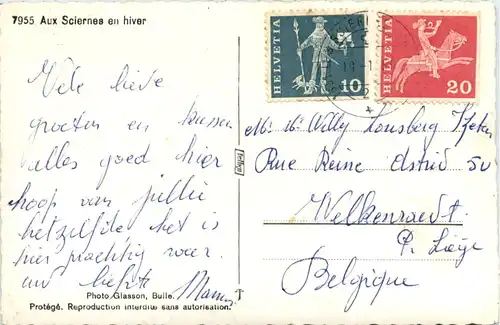 7955 Aux Sciernes en hiver
Vele lieve
groeten en kussen
alles goed hier
hoop van jullie
hetzelfde het is
hier prachtig weer
Photo Glasson, Bulle.
Protégé. Reproduction interdite sans autorisation.
HELVETIA 10
HELVETIA 20
Willy
Rue Reine Astrid 50
Welkenraedt
P. Liège
Belgique